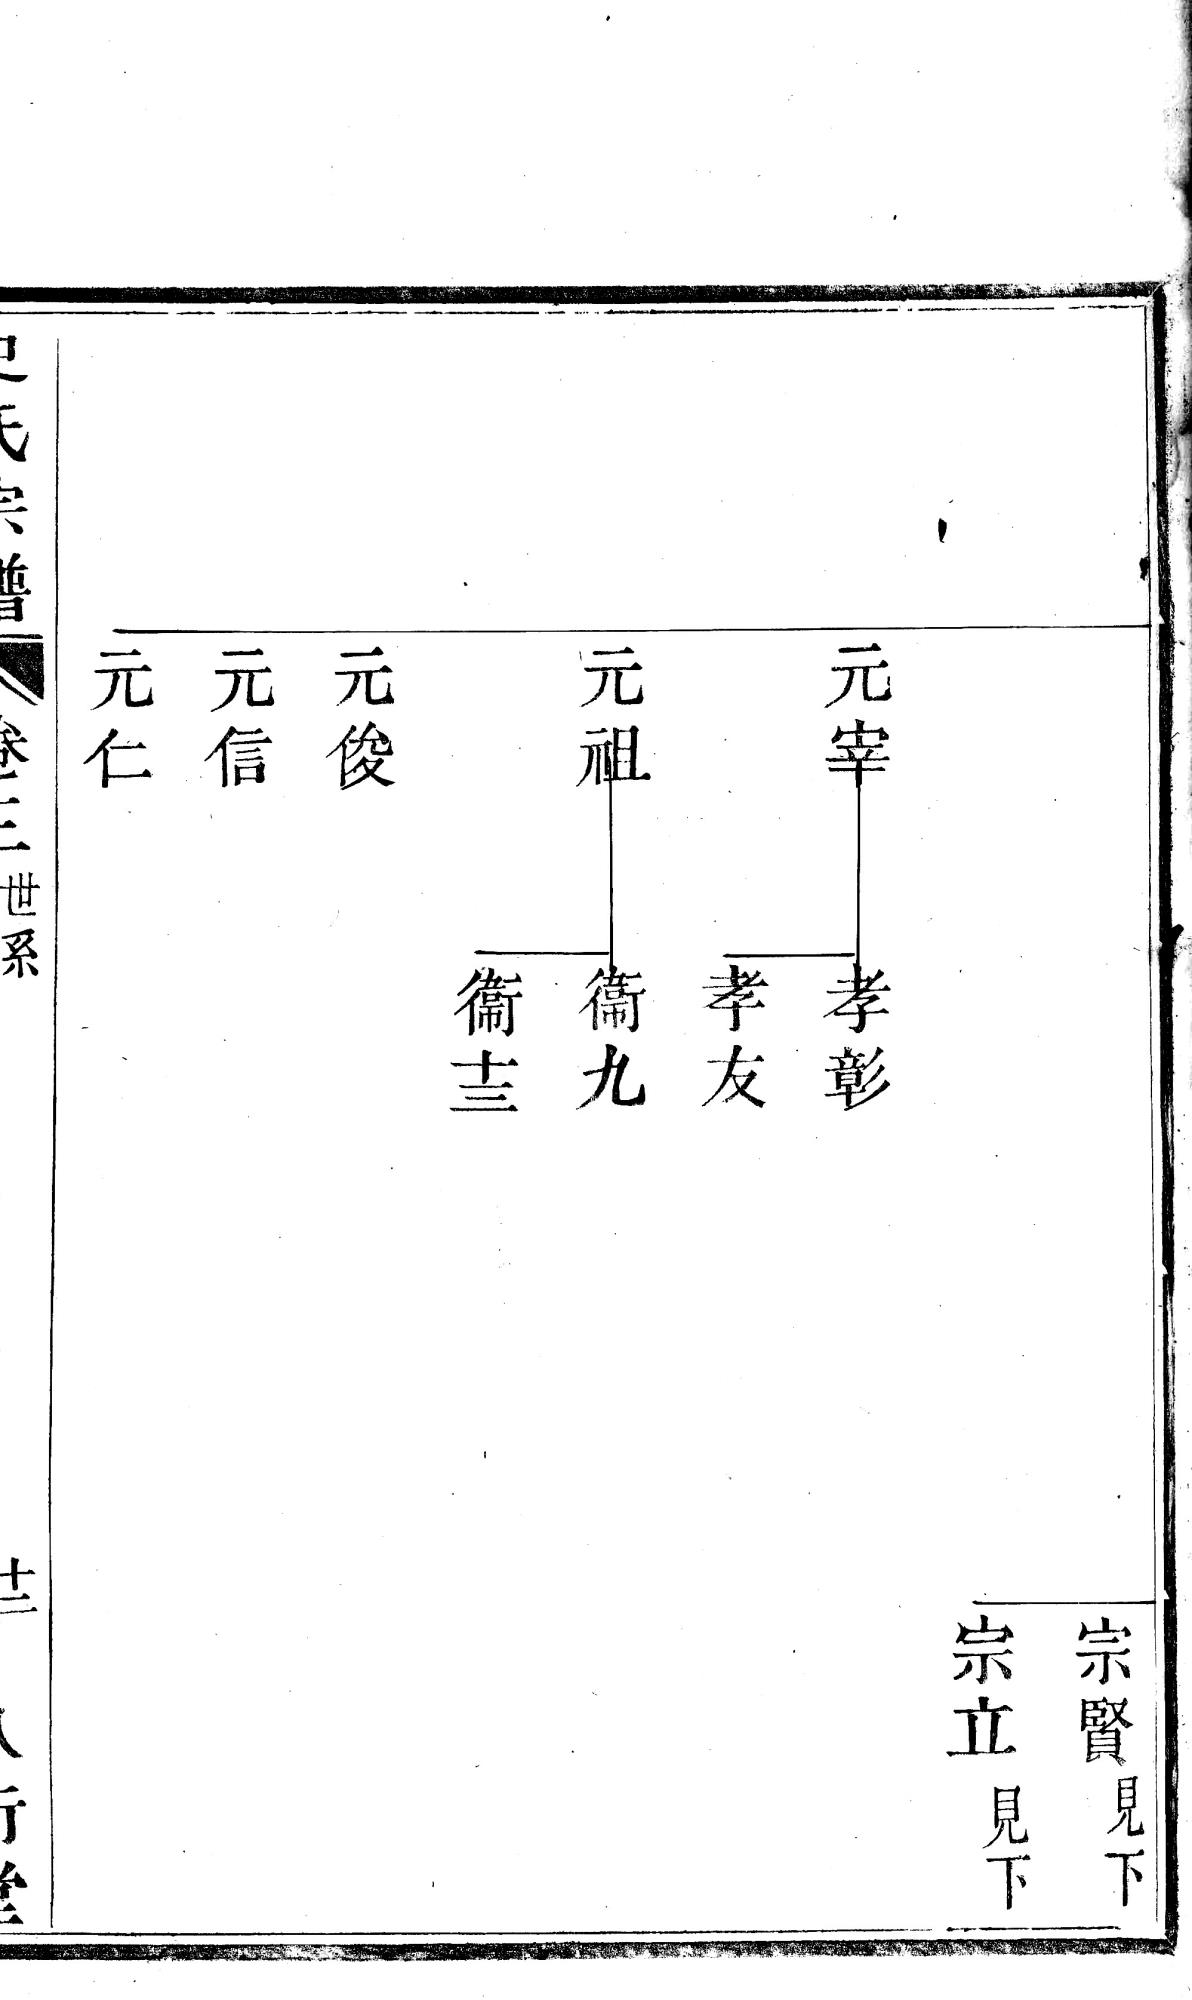 宗賢見下
宗立見下
元宰
孝彰
孝友
元祖
衞九
衞十三
元俊
元信
元仁
史氏宗譜 卷三 世系 十二 八行堂